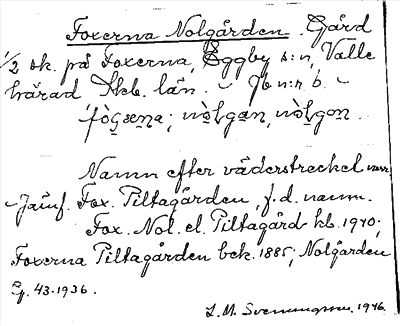 Foxerna Nolgården. Gård
1/2 sk. på Foxerna, Eggby s:n, Valle
härad Skb. län. – Jb n:r 6. –
fògsɛṇa; nòlgaṇ, nòlgon.
Namn efter väderstrecket
Jämf. Fox. Piltagården, f.d. namn.
Fox. Nol. el. Piltagård kb. 1940;
Foxerna Piltagården bek. 1885; Nolgården,
Eg. 43. 1936.
L. M. Svenungsson. 1946.